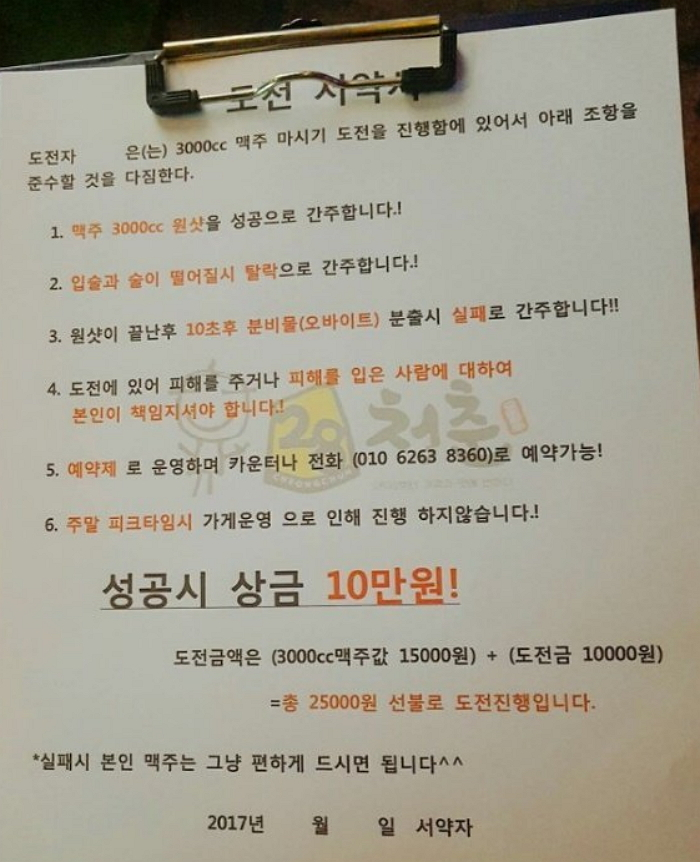 도전 서약서
도전자 은(는) 3000cc 맥주 마시기 도전을 진행함에 있어서 아래 조항을
준수할 것을 다짐한다.
1. 맥주 3000cc 원샷을 성공으로 간주합니다.!
2. 입술과 술이 떨어질시 탈락으로 간주합니다.!
3. 원샷이 끝난후 10초후 분비물(오바이트) 분출시 실패로 간주합니다!!
4. 도전에 있어 피해를 주거나 피해를 입은 사람에 대하여
본인이 책임지셔야 합니다.!
20 청춘
CHEONGCHUN
5. 예약제 로 운영하며 카운터나 전화 (010 6263 8360)로 예약가능!
6. 주말 피크타임시 가게운영 으로 인해 진행 하지않습니다.!
성공시 상금 10만원!
도전금액은 (3000cc맥주값 15000원) + (도전금 10000원)
=총 25000원 선불로 도전진행입니다.
*실패시 본인 맥주는 그냥 편하게 드시면 됩니다^^
2017년 월 일 서약자